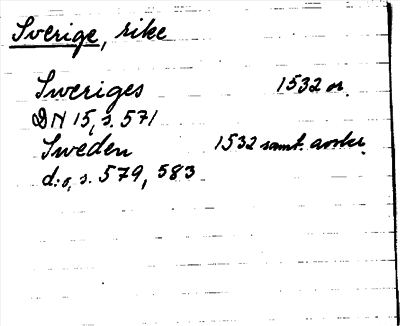 Sverige, rike
Sweriges 1532 or.
DN 15, s. 571
Sweden 1532 samt. avskr.
d:o, s. 579, 583